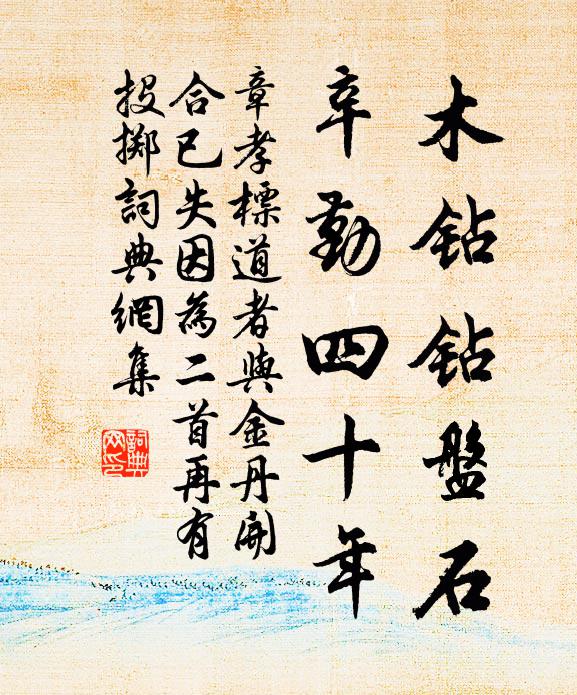 木钻钻盤石
辛勤四十年
章孝標道者與金丹開
合已失因為二首再有
投掷詞典網集
詞典網印